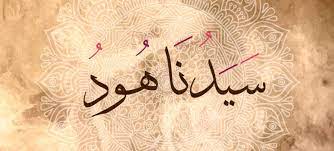 سَيَدُنَا هُودُ